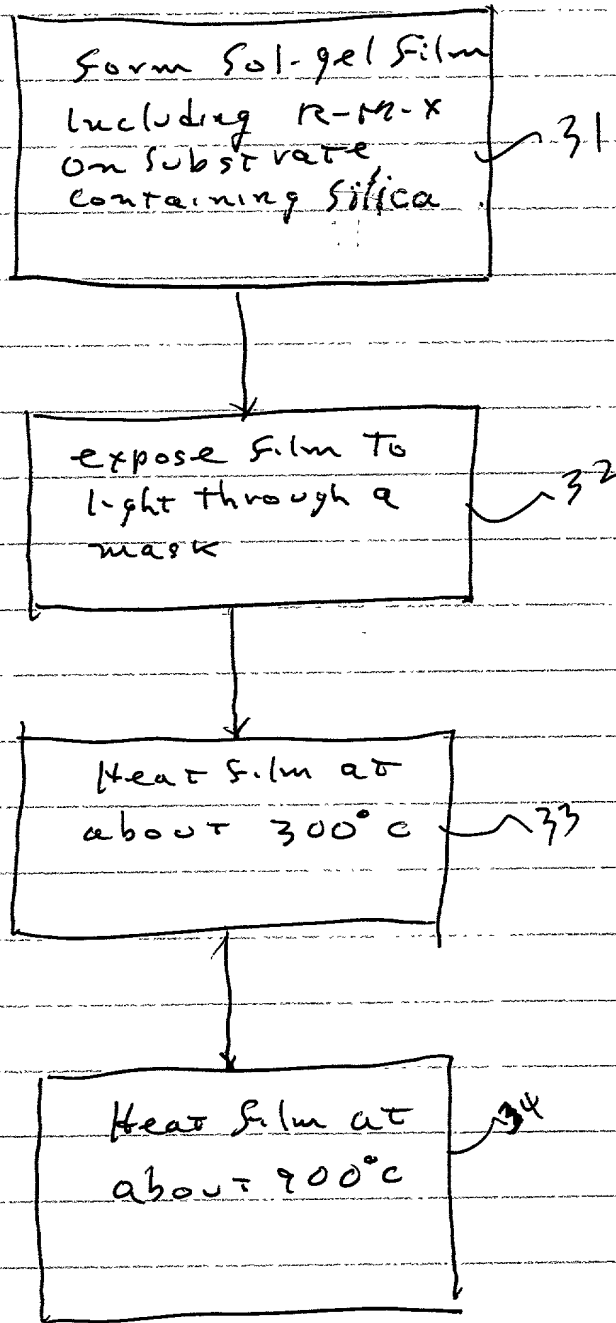 Form Sol-gel Film
including R-M-X
on Substrate
containing Silica
31
expose Film To
light through a
mask
32
Heat Film at
about 300°C
33
Heat Film at
about 900°C
34